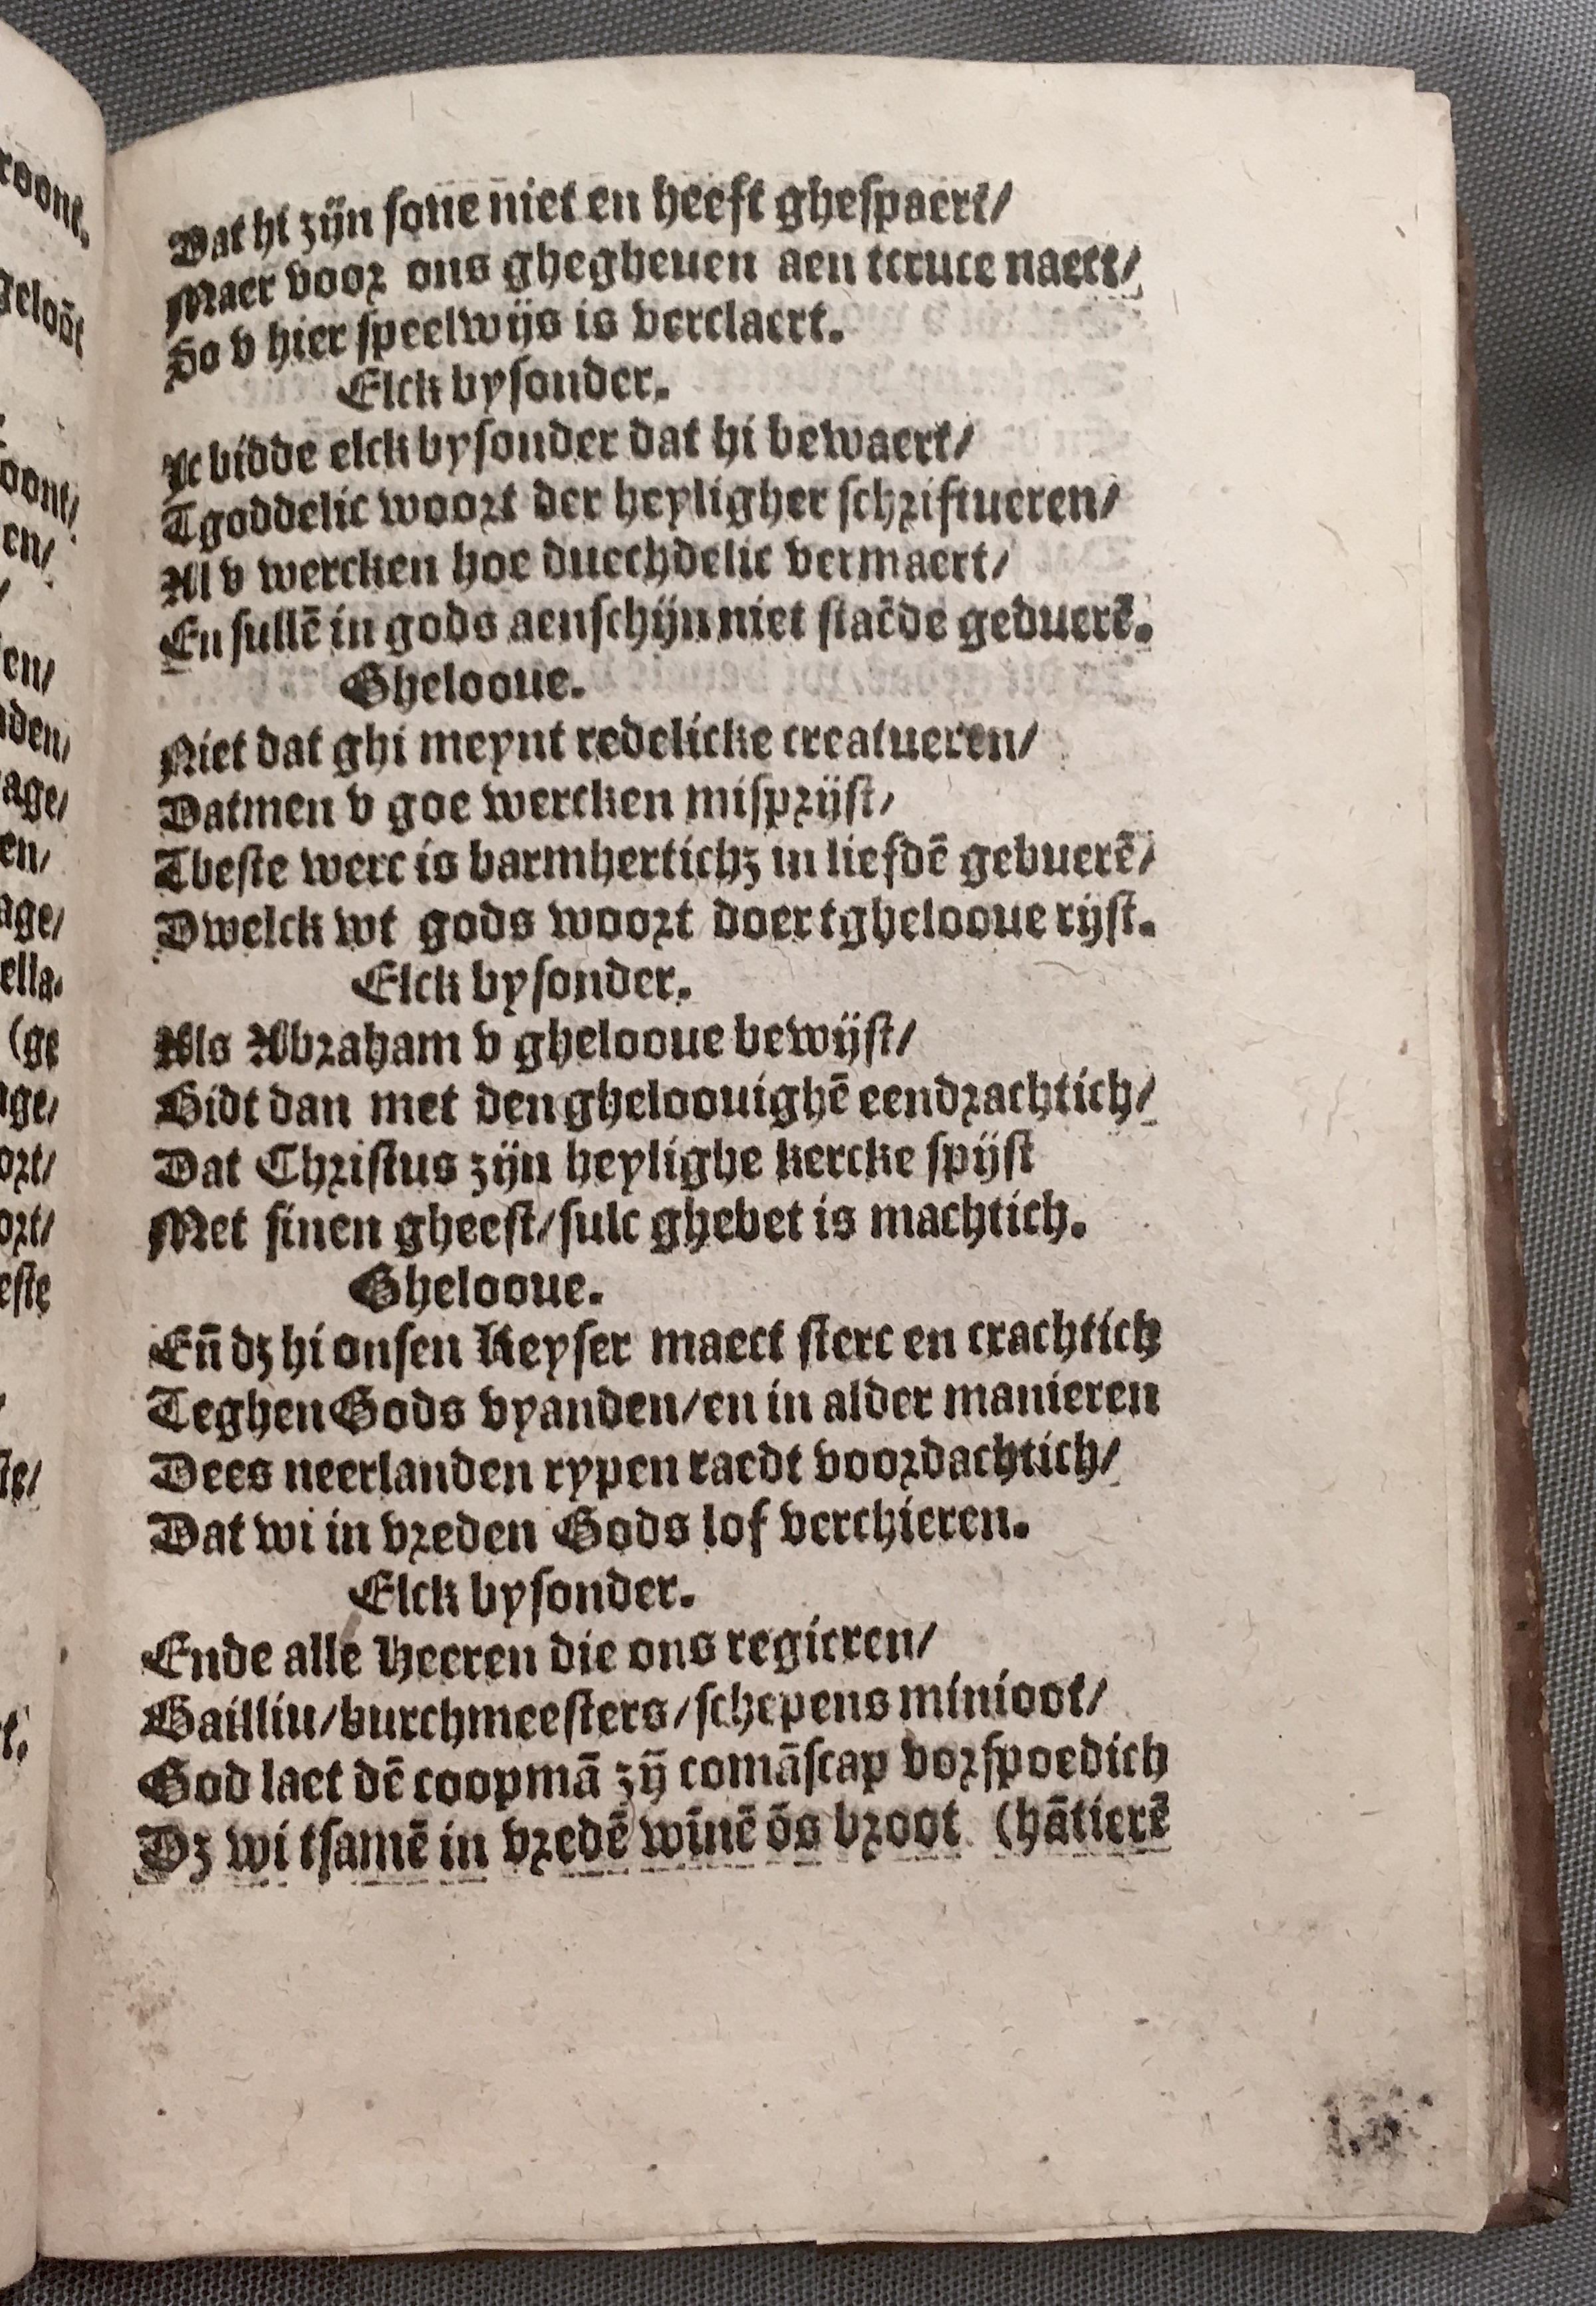 Dat hi zijn sone niet en heeft ghespaert/
Maer voor ons ghegheuen aen tcruce naect/
So v hier speelwijs is verclaert.
Elck bysonder.
Ic bidde elck bysonder dat hi bewaert/
Tgoddelic woort der heyligher schriftueren/
Al v wercken hoe duechdelic vermaert/
En sullē in gods aenschijn niet staēde geduerē.
Ghelooue.
Niet dat ghi meynt redelicke creatueren/
Datmen v goe wercken misprijst/
Tbeste werc is barmhertichz in liefdē gebuerē/
Dwelck wt gods woort doer tghelooue rijst.
Elck bysonder.
Als Abraham v ghelooue bewijst/
Bidt dan met den gheloouighē eendrachtich/
Dat Christus zijn heylighe kercke spijst
Met sinen gheest/sulc ghebet is machtich.
Ghelooue.
Eñ dz hi onsen Keyser maect sterc en crachtich
Teghen Gods vyanden/en in alder manieren
Dees neerlanden rypen raedt voordachtich/
Dat wi in vreden Gods lof verchieren.
Elck bysonder.
Ende alle Heeren die ons regieren/
Bailliu/burchmeesters/schepens minioot/
God laet dē coopmā zij̄ comāscap vorspoedich
Dz wi tsamē in vredē wīnē ōs broot (hātierē